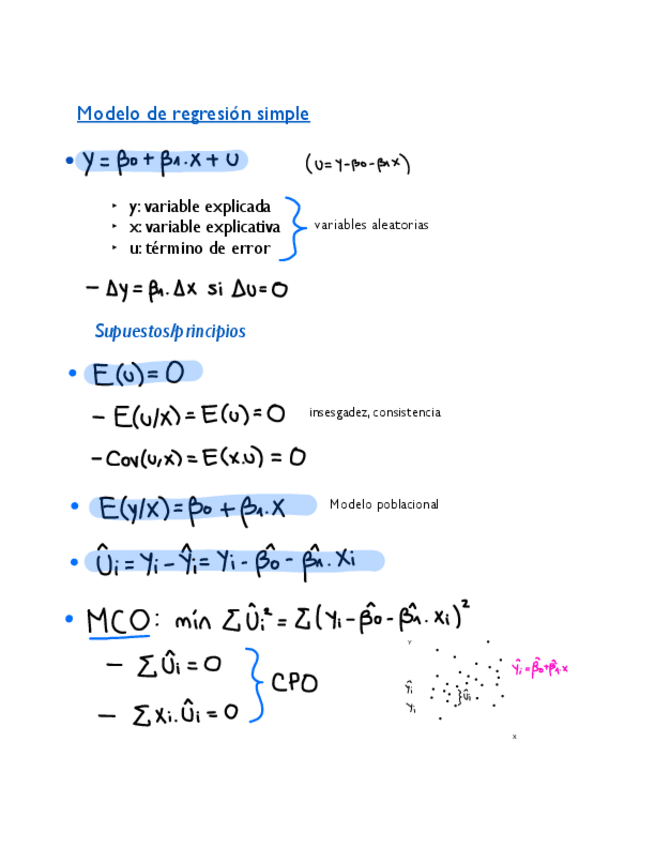 Modelo de regresión simple
• y = β0 + β1.x + u (u = y - β0 - β1x)
‣ y: variable explicada
‣ x: variable explicativa
‣ u: término de error
variables aleatorias
- Δy = β1.Δx si Δu = 0
Supuestos/principios
• E(u) = 0
- E(u/x) = E(u) = 0 insesgadez, consistencia
- Cov(u,x) = E(x.u) = 0
• E(y/x) = β0 + β1.x Modelo poblacional
• ûi = yi - ŷi = yi - β̂0 - β̂1.xi
• MCO: mín Σûi² = Σ(yi - β̂0 - β̂1.xi)²
- Σûi = 0
- Σxi.ûi = 0
CPO
y
ŷi = β̂0 + β̂1.x
ŷi
}ûi
yi
x